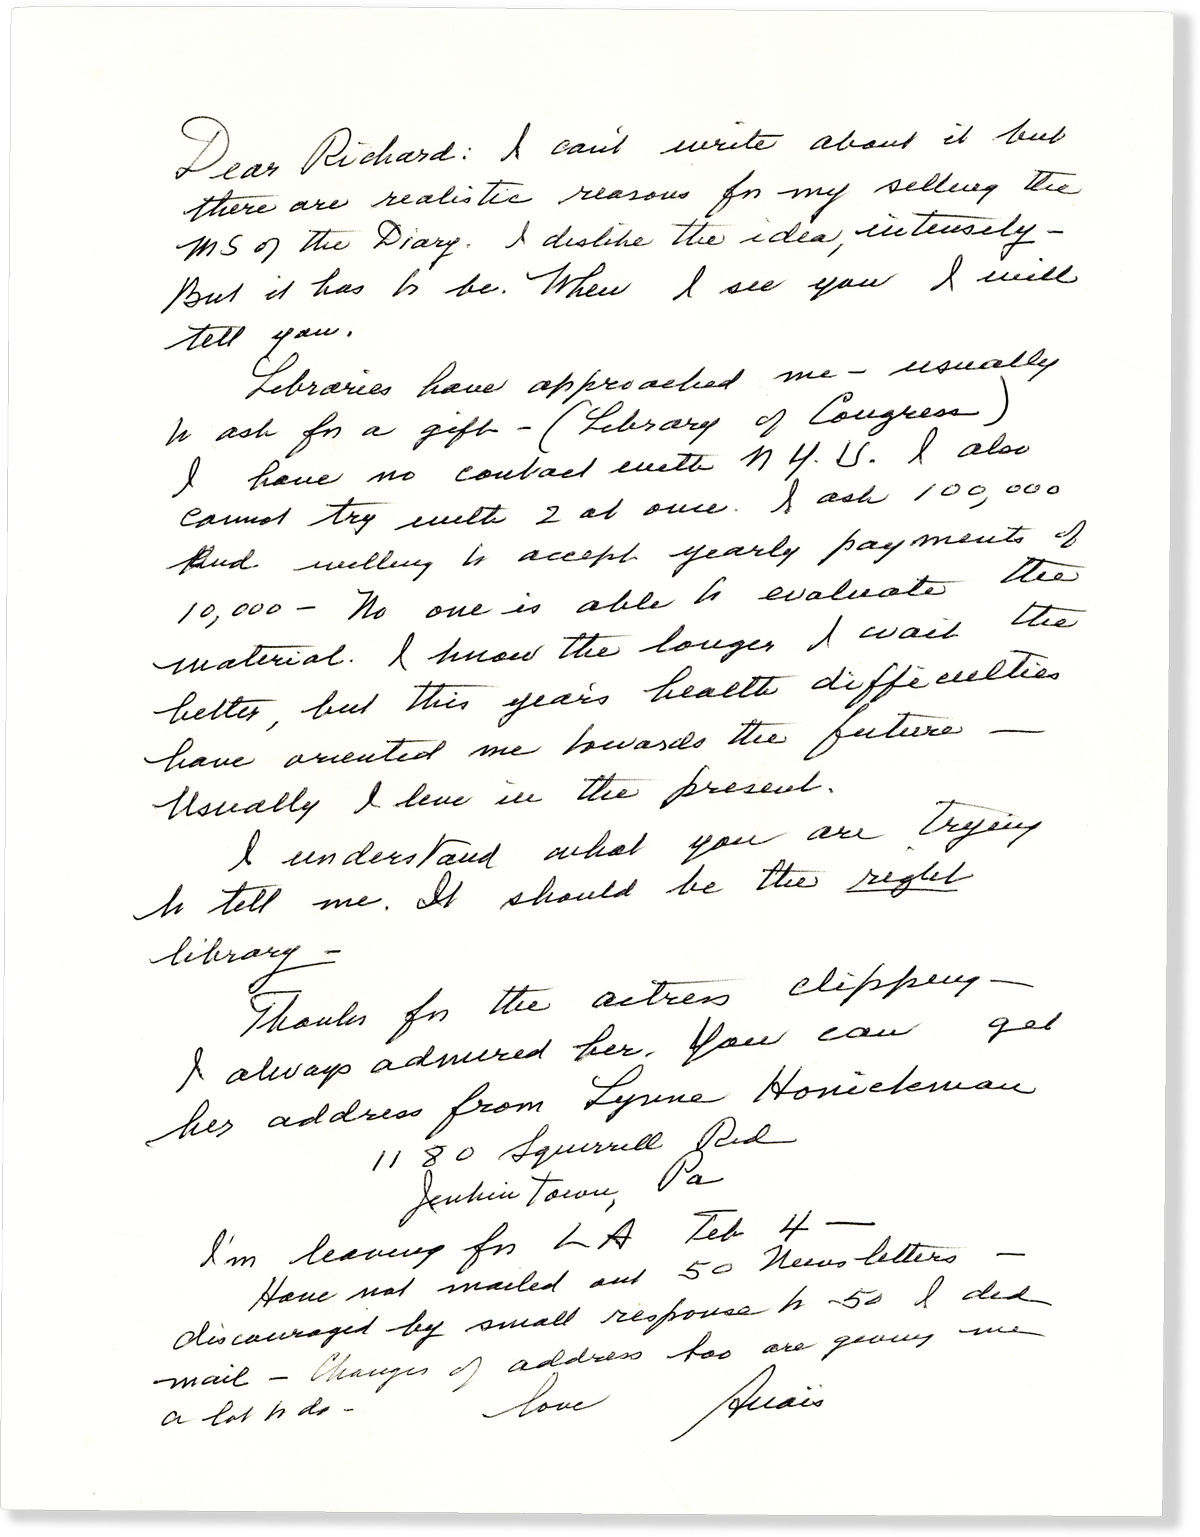 Dear Richard: I can't write about it but
there are realistic reasons for my selling the
MS of the Diary. I dislike the idea, intensely –
But it has to be. When I see you I will
tell you.
Libraries have approached me – usually
to ask for a gift – (Library of Congress)
I have no contact with N Y. U. I also
cannot try with 2 at once. I ask 100,000
And willing to accept yearly payments of
10,000 – No one is able to evaluate the
material. I know the longer I wait the
better, but this year's health difficulties
have oriented me towards the future —
Usually I live in the present.
I understand what you are trying
to tell me. It should be the right
library –
Thanks for the actress clipping —
I always admired her. You can get
her address from Lynne Honickman
1180 Squirrell Rd
Jenkintown, Pa
I'm leaving for LA Feb 4 —
Have not mailed out 50 Newsletters —
discouraged by small response to 50 I did
mail – Changes of address too are giving me
a lot to do – love Anaïs